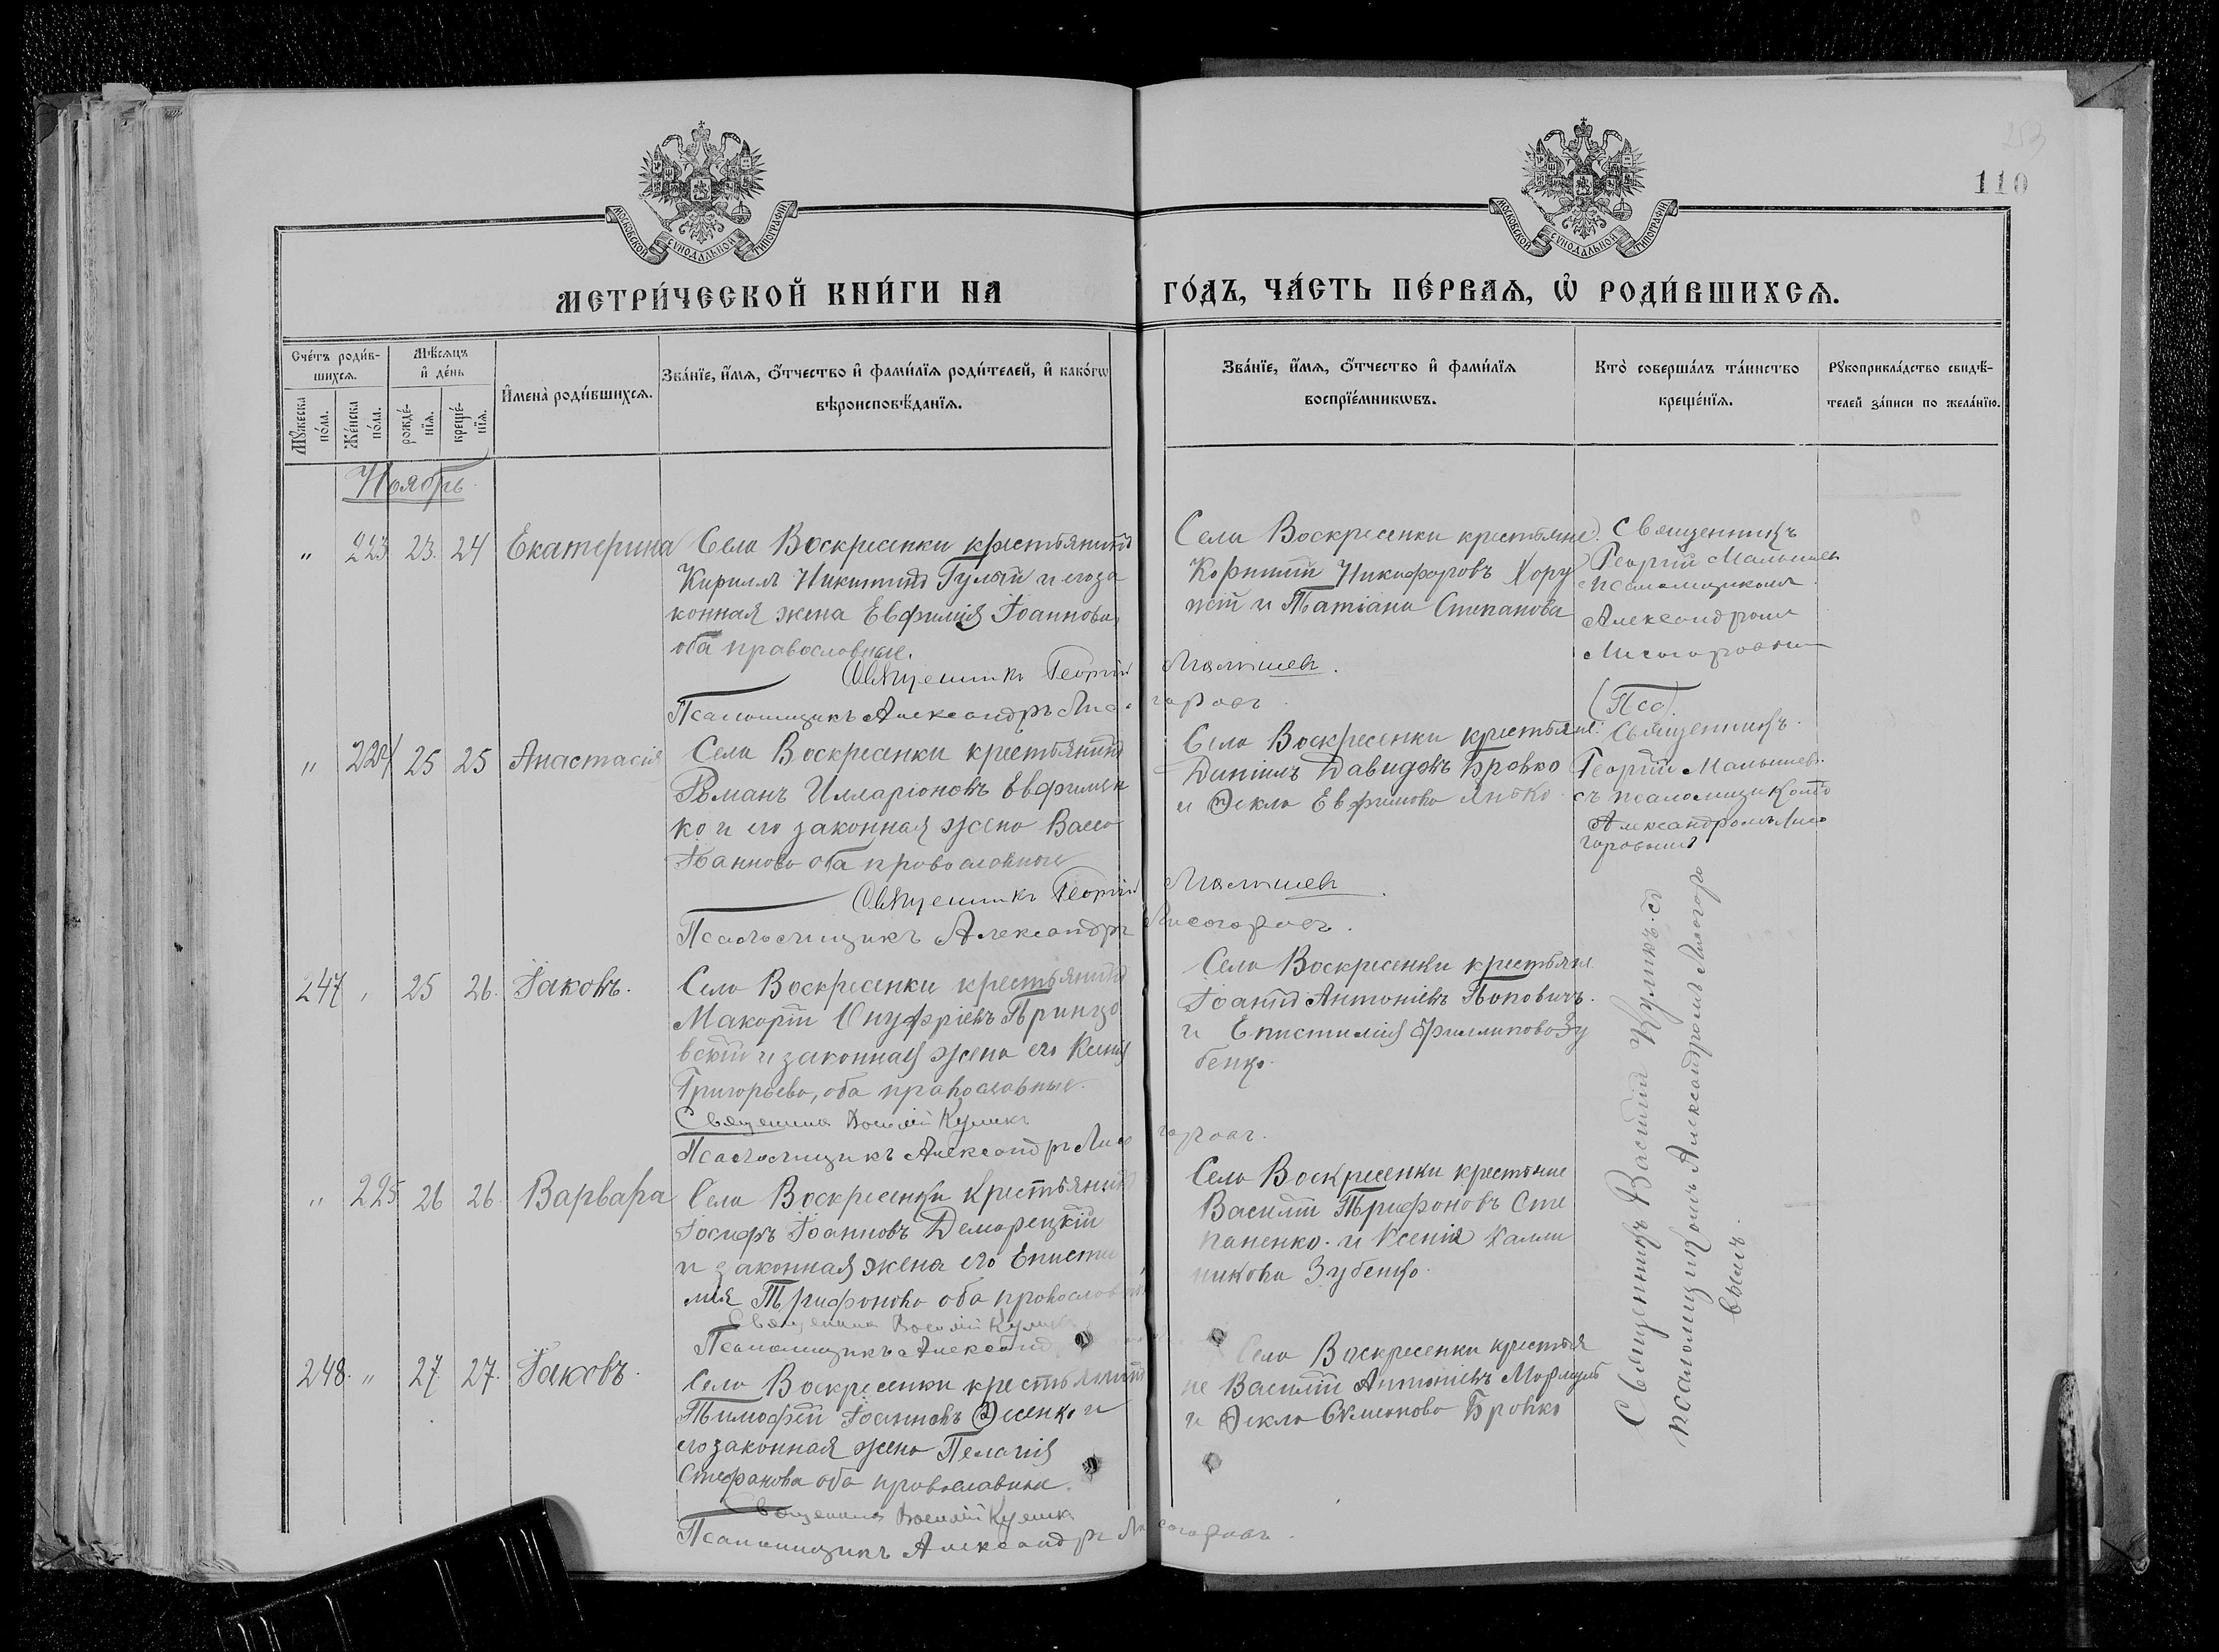 253
110
МОСКОВСКОЙ СѴНОДАЛЬНОЙ ТИПОГРАФІИ
МОСКОВСКОЙ СѴНОДАЛЬНОЙ ТИПОГРАФІИ
МЕТРИ́ЧЕСКОЙ КНИ́ГИ НА ГО́ДЪ, ЧА́СТЬ ПЕ́РВАЯ, Ѡ РОДИ́ВШИХСЯ.
Сче́тъ роди́в-
шихся.
Мꙋжеска по́ла.
Же́нска по́ла.
Мѣ́сяцъ
и де́нь
рожде́-
нїя.
креще́-
нїя.
Имена̀ роди́вшихся.
Зва́нїе, и́мя, о́тчество и фами́лїя роди́телей, и како́гѡ
вѣроисповѣ́данїя.
Зва́нїе, и́мя, о́тчество и фами́лїя
воспрїе́мникѡвъ.
Кто̀ соверша́лъ та́инство
креще́нїя.
Рꙋкоприкла́дство свидѣ́-
телей за́писи по жела́нїю.
Ноябрь
" 223 23. 24 Екатерина
Села Воскресенки крестьянинъ
Кириллъ Никитинъ Гулый и его за
конная жена Евфимія Іоаннова,
оба православные.
Села Воскресенки крестьяне.
Корнилій Никифоровъ Хору
жій и Татіана Степанова
Священникъ
Георгій Малышев
с псаломщикомъ
Александромъ
Лисогоровым
Священникъ Георгій Малышев.
Псаломщикъ Александръ Лисогоровъ
(Пса)
" 224 25 25 Анастасія
Села Воскресенки крестьянинъ
Романъ Илларіоновъ Евфимен
ко и его законная жена Васса
Іоаннова оба православные
Села Воскресенки крестьяне.
Даніилъ Давидовъ Бровко
и Ѳекла Евфимова Янько
Священникъ.
Георгій Малышевъ
съ псаломщикомъ
Александромъ Лисо
горовымъ
Священникъ Георгій Малышев.
Псаломщикъ Александръ Лисогоровъ.
247 " 25 26. Іаковъ.
Села Воскресенки крестьянинъ
Макарій Онуфріевъ
и законная жена его Ксенія
Григорьева, оба православные.
Села Воскресенки крестьяне
Іоаннъ Антоніевъ Поповичъ.
и Епистимія Филиппова Зу
бенко.
Священникъ Василій Куликъ
Псаломщикъ Александръ Лисогоровъ.
" 225 26 26. Варвара
Села Воскресенки крестьянинъ
Іосифъ Іоанновъ Деморецкій
и законная жена его Еписти
мія Трифонова оба православные
Села Воскресенки крестьяне
Василій Трифоновъ Сте
паненко. и Ксенія Калли
никова Зубенко.
Священникъ Василій Куликъ
Псаломщикъ Александръ
248. " 27. 27. Іаковъ.
Села Воскресенки крестьянинъ
Тимофей Іоанновъ Ѳесенко и
его законная жена Пелагія
Стефанова оба православные.
Села Воскресенки крестья
не Василій Антоніевъ
и Ѳекла Симеонова Бровко
Священникъ Василій Куликъ
Псаломщикъ Александръ Лисогоровъ.
Священникъ Василій Куликъ. съ
псаломщикомъ Александромъ Лисогоро
вымъ.